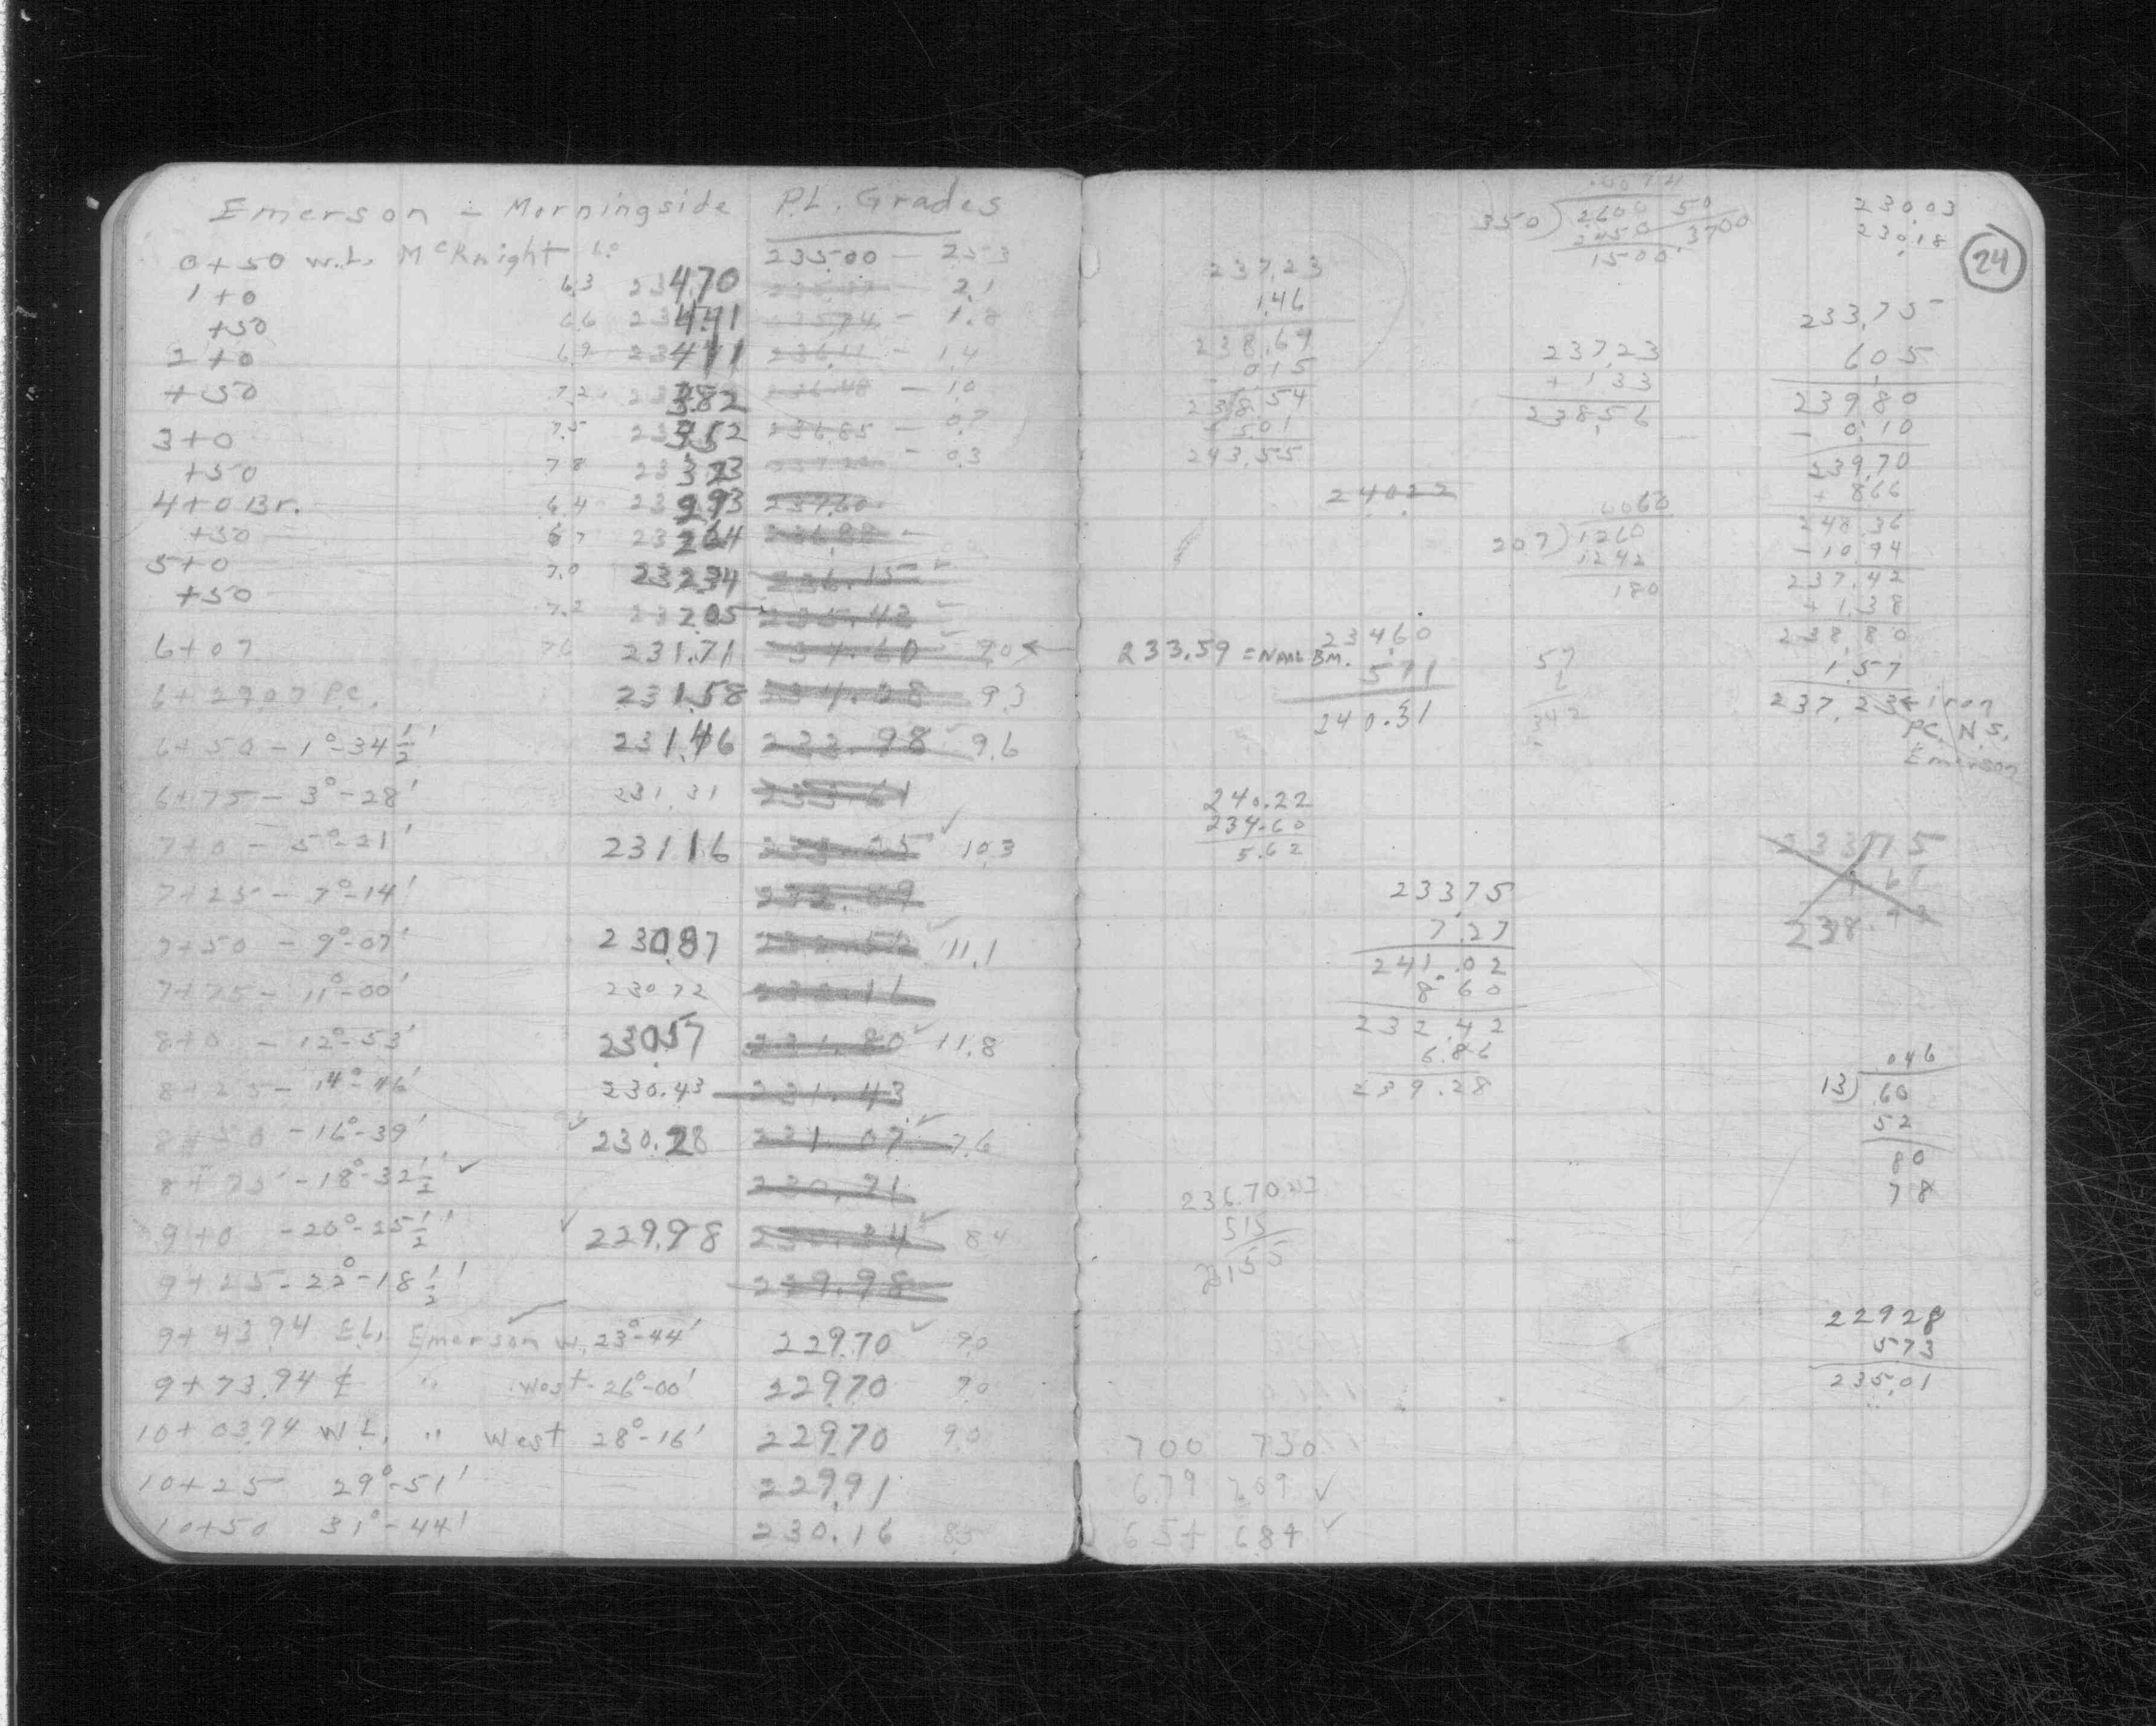 Emerson - Morningside P.L. Grades
0+50 W.L. McKnight 6.0 235.00 - 2.53
1+0 6.3 234.70 - 2.1
+50 6.6 234.41 - 1.8
2+0 6.9 234.11 236.11 - 1.4
+50 7.2 233.82 236.48 - 1.0
3+0 7.5 233.52 236.85 - 0.7
+50 7.8 233.23 - 0.3
4+0 Br. 6.4 232.93 237.60
+50 6.7 232.64 236.88 -
5+0 7.0 232.34 236.15
+50 7.2 232.05 235.43
6+07 7.6 231.71 234.60 9.0 ←
6+29.07 P.C. 231.58 234.28 9.3
6+50 - 1°-34 1/2' 231.46 233.98 9.6
6+75 - 3°-28' 231.31 233.61
7+0 - 5°-21' 231.16 233.25 ✓ 10.3
7+25 - 7°-14' 232.89
7+50 - 9°-07' 230.87 232.52 ✓ 11.1
7+75 - 11°-00' 230.72 232.16
8+0 - 12°-53' 230.57 231.80 ✓ 11.8
8+25 - 14°-46' 230.43 231.43
8+50 - 16°-39' 230.28 231.07 ✓ 7.6
8+75 - 18°-32 1/2' ✓ 230.71
9+0 - 20°-25 1/2' ✓ 229.98 230.34 ✓ 8.4
9+25 - 22°-18 1/2' 229.98
9+43.94 E.L. Emerson W. 23°-44' 229.70 ✓ 9.0
9+73.94 ₵ " West - 26°-00' 229.70 9.0
10+03.94 W.L. " West 28°-16' 229.70 9.0
10+25 29°-51' 229.91
10+50 31°-44' 230.16 8.5
24
.0074
350) 2.600 50
2450 .3700
1500
230.03
230.18
237.23
1.46
238.69
- 0.15
238.54
5.01
243.55
237.23
+ 1.33
238.56
240.22
.0060
207) 1260
1242
180
233.75
6.05
239.80
- 0.10
239.70
+ 8.66
248.36
- 10.94
237.42
+ 1.38
238.80
1.57
237.23 ← iron
P.C. N.S.
Emerson
233.59 = Nail B.M.
234.60
5.71
240.31
57
6
342
240.22
234.60
5.62
233.75
7.27
241.02
8.60
232.42
6.86
239.28
233.75
238.43
.046
13) .60
52
80
78
236.70
515
23155
229.28
5.73
235.01
700 730
679 709 ✓
654 684 ✓